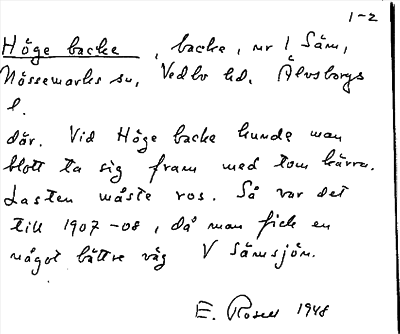 1-2
Höge backe, backe, nr 1 Säm,
Nössemarks sn, Vedbo hd, Älvsborgs
l.
där. Vid Höge backe kunde man
blott ta sig fram med tom kärra.
Lasten måste ros. Så var det
till 1907-08, då man fick en
något bättre väg V Sämsjön.
E. Rosell 1948